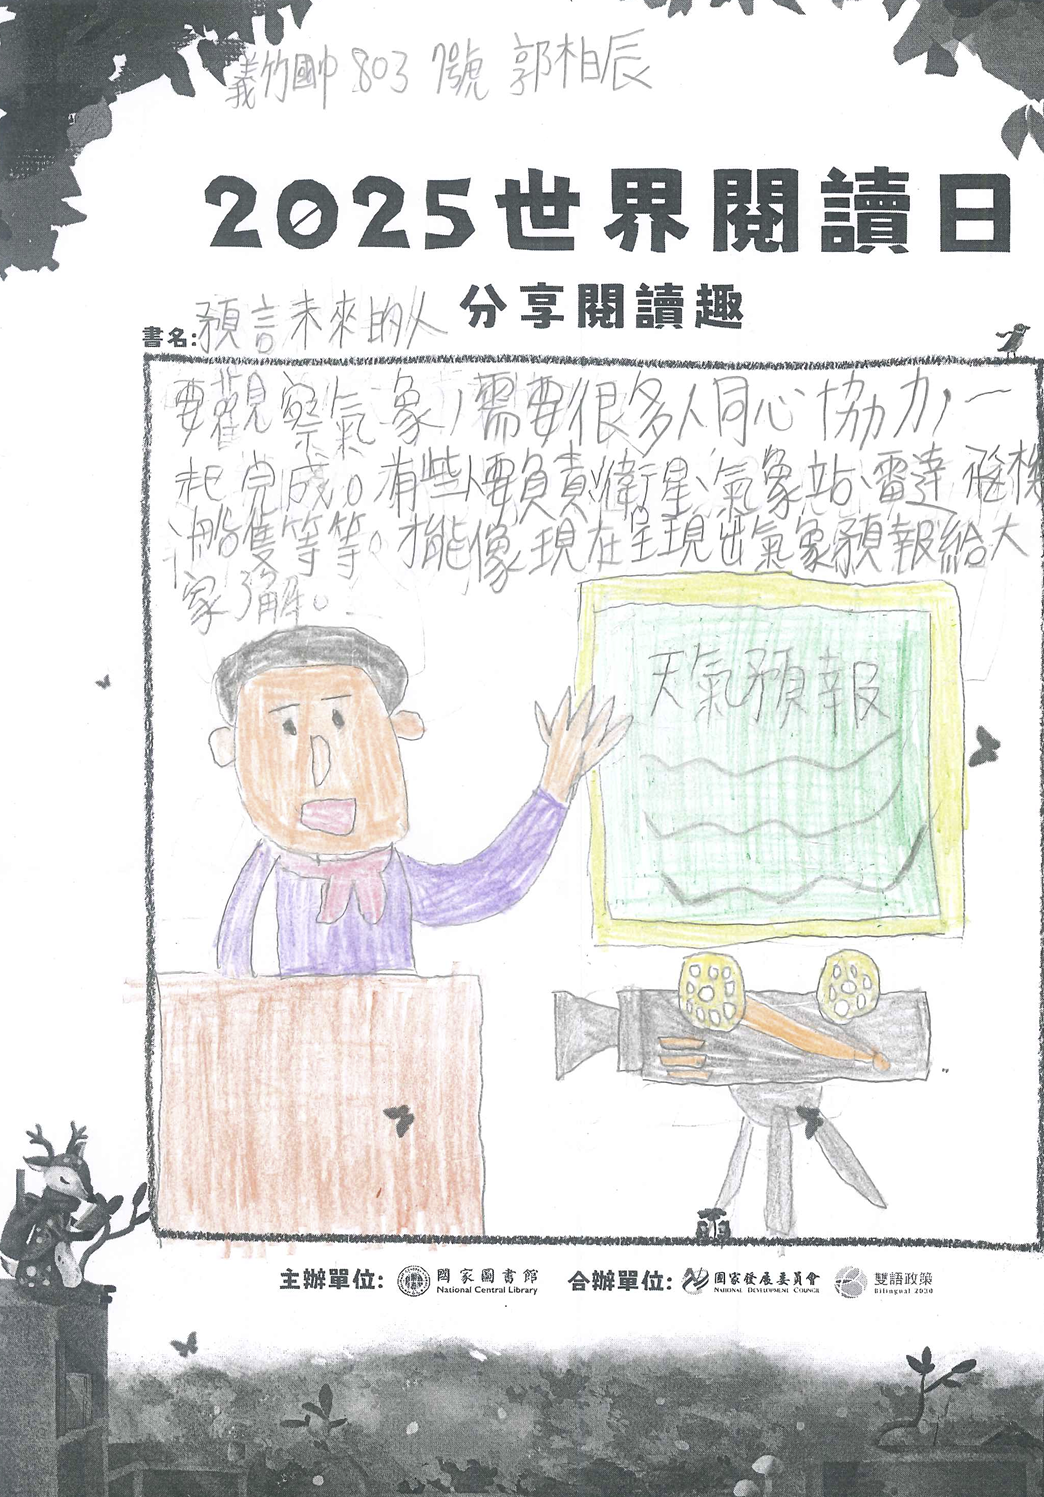 義竹國中 803 7號 郭柏辰
2025世界閱讀日
分享閱讀趣
書名:預言未來的人
要觀察氣象,需要很多人同心協力,一
起完成。有些人要負責衛星、氣象站、雷達、飛機
、船隻等等。才能像現在呈現出氣象預報給大
家了解。
天氣預報
主辦單位: 國家圖書館 National Central Library 合辦單位: 國家發展委員會 National Development Council 雙語政策 Bilingual 2030